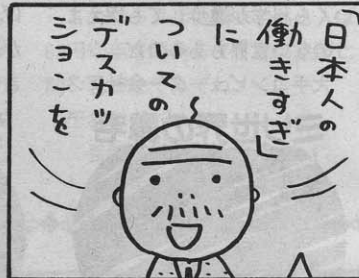 「日本人の
働きすぎ」
に
ついての
デスカッ
ションを